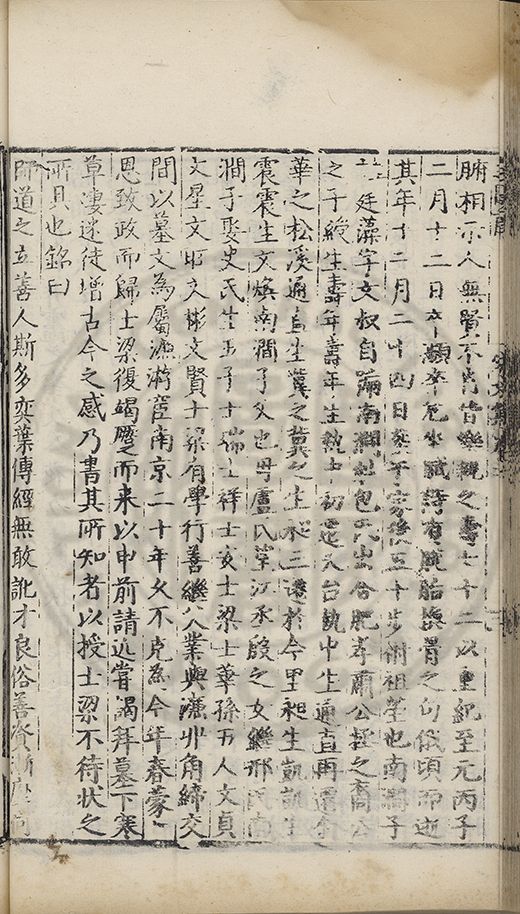 腑相示人無賢不肖皆樂親之壽七十二以重紀至元丙子
二月十二日卒瀕卒危坐賦詩有脫胎換骨之句俄頃而逝
其年十二月二十四日葬于家後五十步祔祖塋也南澗子
廷藻字文叔自號南澗姓包氏出合肥孝肅公拯之裔公
之子綬生壽年壽年生執中初遷天台執中生通直再遷金
華之松溪通直生冀之冀之生昶三遷於今里昶生凱凱生
震震生文煥南澗子父也母盧氏草江承毅之女繼邢氏南
澗子娶史氏生五子士瑞士祥士寅士梁士華孫五人文貞
文星文昭文彬文賢士梁有學行善繼父業與濂丱角締交
間以墓文為屬濂游宦南京二十年久不克為今年春蒙
恩致政而歸士梁復竭蹷而来以申前請近嘗謁拜墓下寒
草淒迷徒增古今之感乃書其所知者以授士梁不待状之
所具也銘曰
師道之立善人斯多奕葉傳經無敢訛才良俗善資